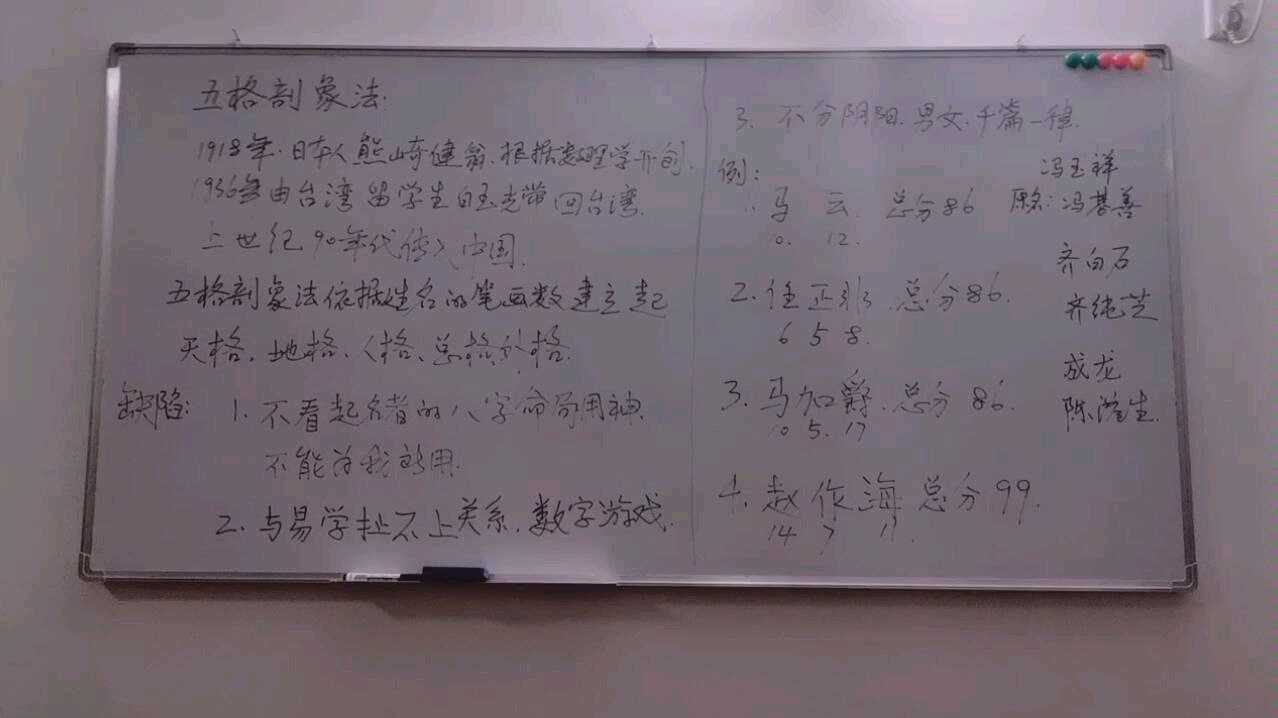 五格剖象法.
1918年.日本人熊崎健翁.根据数理学开创.
1936年由台湾留学生白玉光带回台湾.
上世纪90年代传入中国.
五格剖象法依据姓名的笔画数建立起
天格、地格、人格、总格外格.
缺陷: 1. 不看起名者的八字命局用神.
不能为我所用.
2. 与易学扯不上关系.数字游戏.
3. 不分阴阳.男女.千篇一律.
例:
1. 马 云 总分86
10. 12.
2. 任正非 总分86.
6 5 8.
3. 马加爵. 总分 86.
10 5. 17
4. 赵作海 总分99.
14 7 11.
冯玉祥
原名: 冯基善
齐白石
齐纯芝
成龙
陈港生.